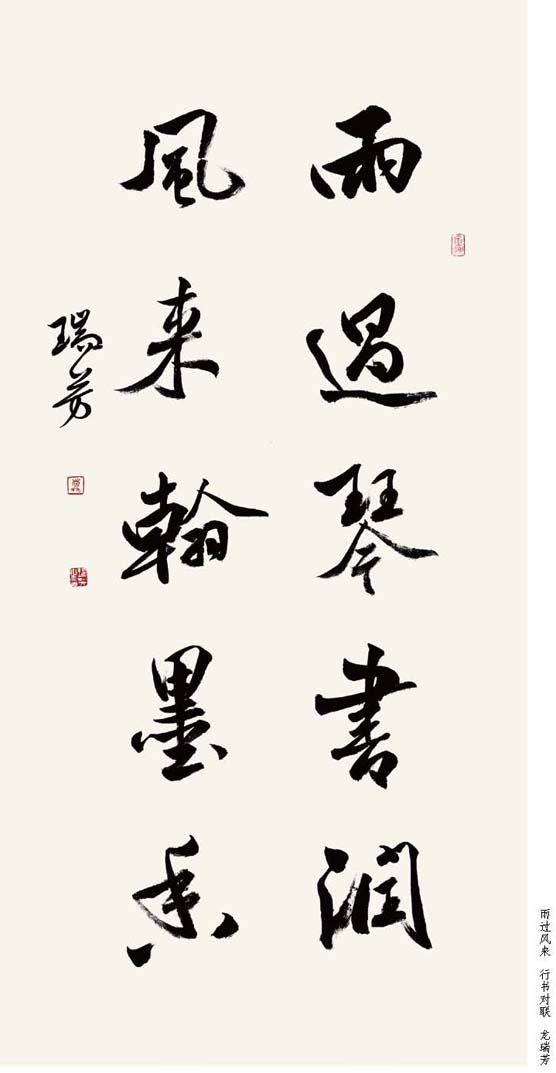 雨過琴書潤
風来翰墨香
瑞芳
雨过风来 行书对联 龙瑞芳